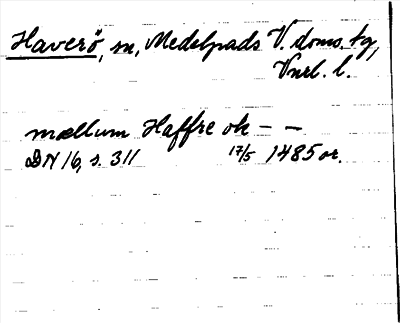 Haverö, sn, Medelpads V. doms. tg,
Vnrl. l.
mællum Haffre ok – –
DN 16, s. 311 17/5 1485 or.